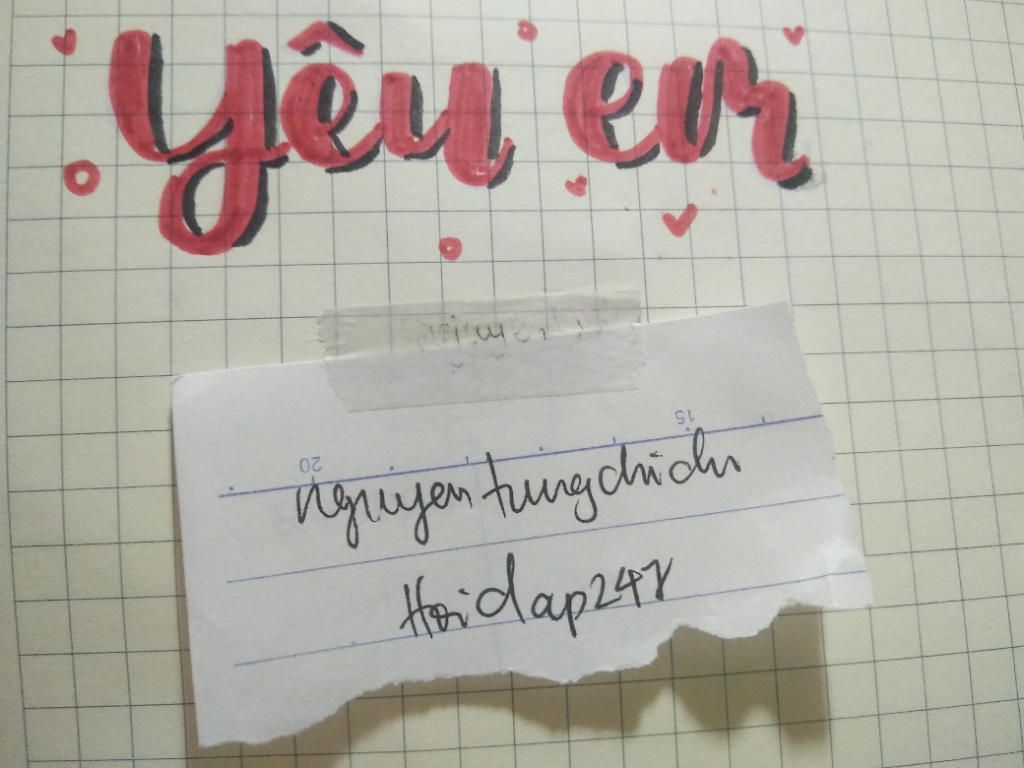 yêu em
15
20
nguyen tungchichi
Hoidap247